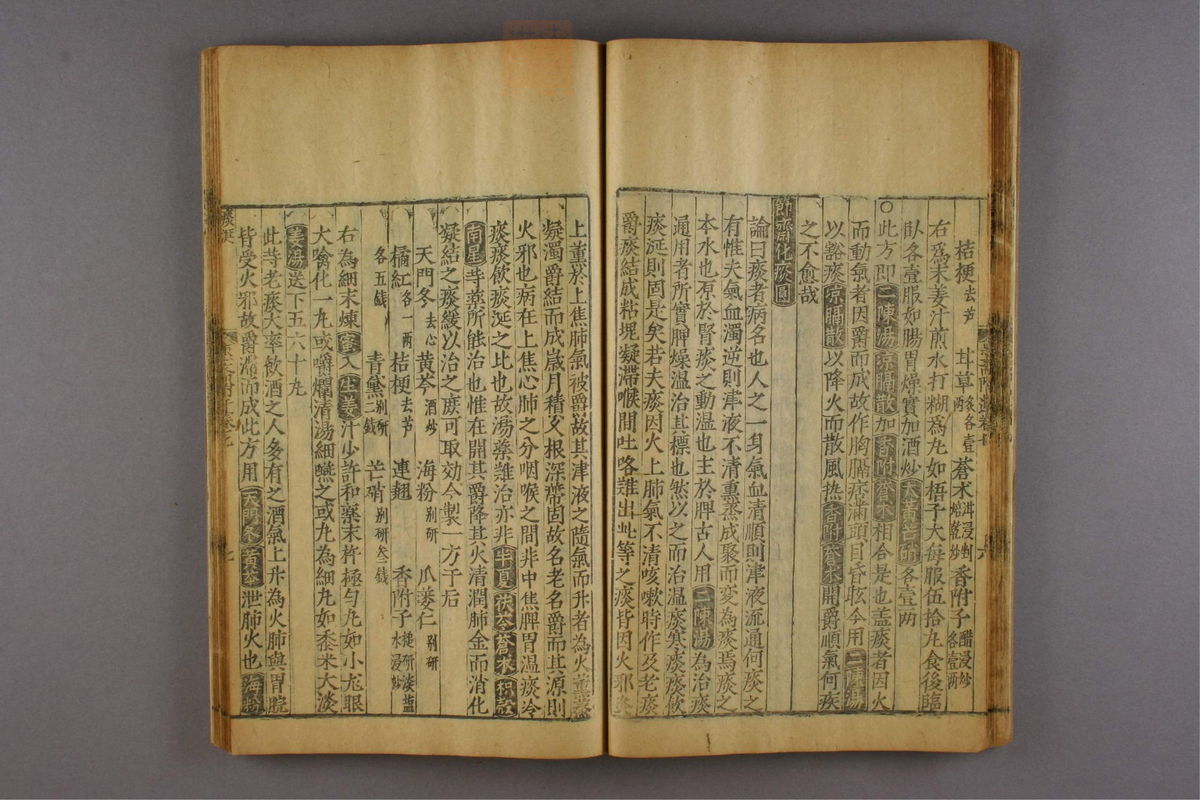 桔梗去芦 甘草炙各壹兩 蒼术泔浸剉焙乾炒 香附子醋浸炒各壹兩
右為末姜汁煎水打糊為丸如梧子大每服伍拾丸食後臨
臥各壹服如腸胃燥實加酒炒大黃芒硝各壹兩
○此方即二陳湯凉膈散加香附蒼术相合是也盖痰者因火
而動氣者因爵而成故作胸膈痞滿頭目昏眩今用二陳湯
以豁痰凉膈散以降火而散風热香附蒼术開爵順氣何疾
之不愈哉
節齋化痰圓
論曰痰者病名也人之一身氣血清順則津液流通何痰之
有惟夫氣血濁逆則津液不清熏蒸成聚而変為痰焉痰之
本水也原於腎痰之動温也主於脾古人用二陳湯為治痰
通用者所實脾燥温治其標也然以之而治温痰寒痰痰飲
痰涎則固是矣若夫痰因火上肺氣不清咳嗽時作及老痰
爵痰結成粘塊凝滯喉間吐咯難出此等之痰皆因火邪炎
上薰於上焦肺氣被爵故其津液之隨氣而升者為火薰蒸
凝濁爵結而成歲月積久根深蒂固故名老名爵而其源則
火邪也病在上焦心肺之分咽喉之間非中焦脾胃温痰冷
痰痰飲痰涎之比也故湯藥難治亦非半夏茯苓蒼术枳殼
南星等藥所能治也惟在開其爵降其火清潤肺金而消化
凝結之痰緩以治之庶可取効今製一方于后
天門冬去心 黄芩酒炒 海粉别研 瓜蔞仁别研
橘紅各一兩 桔梗去芦 連翹 香附子搥研淡盐水浸炒
各五錢 青黛别研二錢 芒硝别研叁錢
右為細末煉蜜入生姜汁少許和藥末杵極勻丸如小尨眼
大噙化一丸或嚼爛清湯細嚥之或丸為細丸如黍米大淡
姜湯送下五六十丸
此等老痰大率飲酒之人多有之酒氣上升為火肺與胃脘
皆受火邪故爵滯而成此方用天門冬黄芩泄肺火也海粉